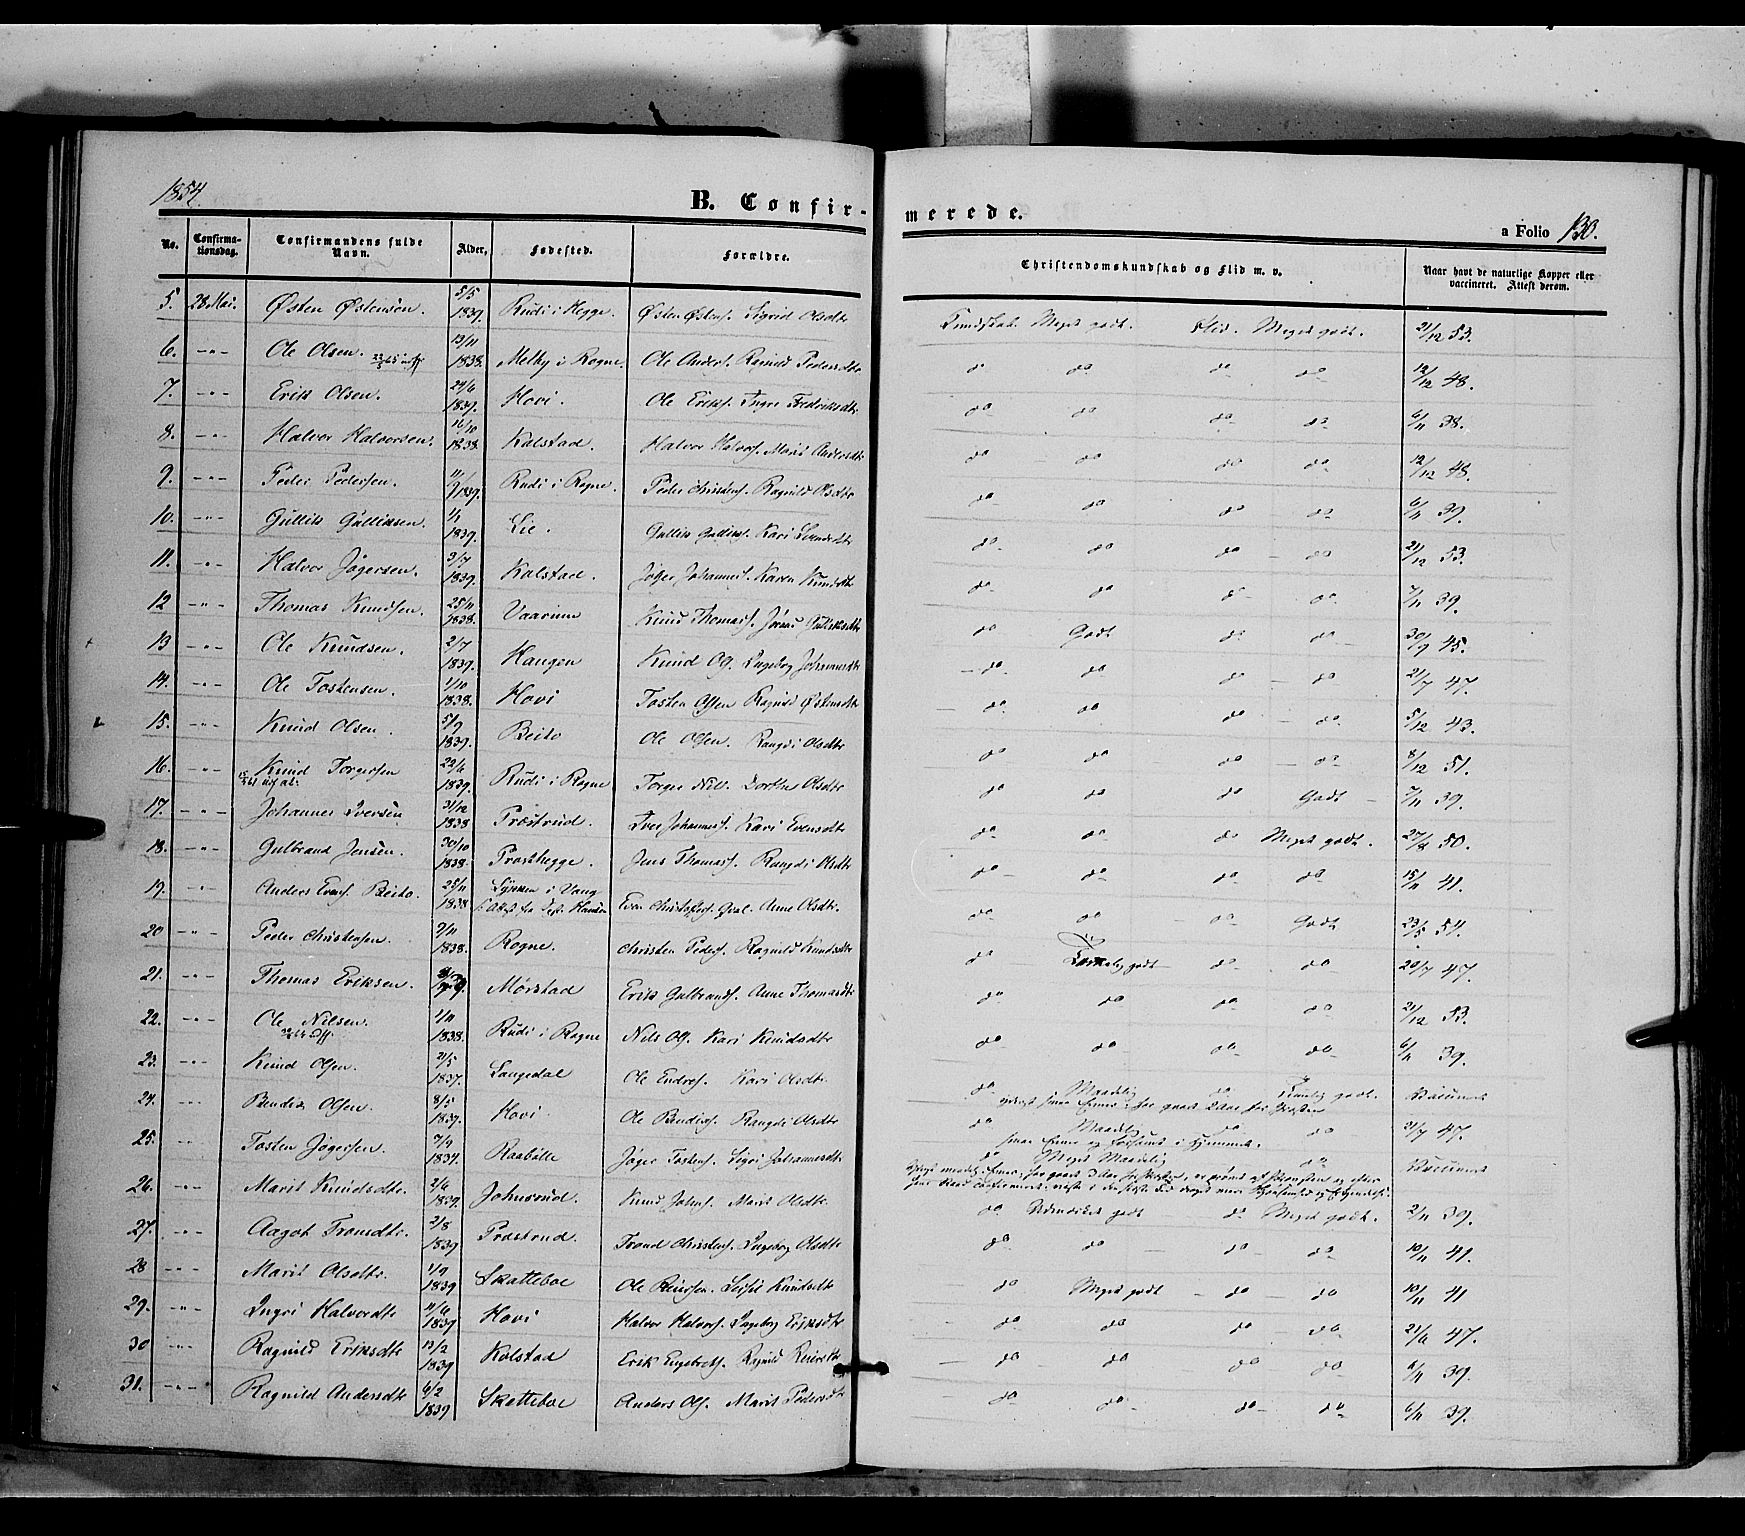 1854.
B. Confir-
merede.
a Folio 130.
No. Confirma-tionsdag. Confirmandens fulde Navn. Alder. Fødested. Forældre. Christendomskundskab og Flid m. v. Naar havt de naturlige Kopper eller vaccineret. Attest derom.
5. 28 Mai. Østen Østensøn. 5/5 1839. Rudi i Hegge. Østen Østens. Sigrid Olsdtr Kundskab. Meget godt. Flid. Meget godt. 21/12 53.
6. -"- Ole Olsen. 13/11 1838. Melby i Rogne. Ole Anders. Ragnild Pedersdtr do do do do 12/12 48.
7. -"- Erik Olsen. 29/6 1839. Hovi. Ole Eriks. Ingri Fredriksdtr do do do do 6/11 38.
8. -"- Halvor Halvorsen. 16/10 1838. Kolstad. Halvor Halvors. Marit Andersdtr do do do do 12/12 48.
9. -"- Peder Pedersen. 1839. Rudi i Rogne. Peder Christens. Ragnild Olsdtr do do do do 6/11 39.
10. -"- Gullik Gulliksen. 1/1 1839. Lie. Gullik Gulliks. Kari do do do do 21/12 53.
11. -"- Halvor Jøgersen. 3/7 1839. Kolstad. Jøger Johannes. Karen Knudsdtr do do do do 7/11 39.
12 -"- Thomas Knudsen. 25/11 1838. Vaarum Knud Thomas. Guliksdtr do Godt do do 30/9 45.
13 -"- Ole Knudsen. 2/7 1839. Haugen Knud Ols. Ingeborg Johannesdtr do do do do 21/7 47.
14. -"- Ole Tostensen. 1/10 1838. Hovi Tosten Olsen Ragnild Østensdtr do do do do 5/12 43.
15. -"- Knud Olsen. 5/9 1839. Beito Ole Olsen. Rangdi Olsdtr do do do do 8/12 51.
16. -"- Knud Torgersen 22/6 1839. Rudi i Rogne Torger Nils. Dorthe Olsdtr do do do Godt 7/11 39.
17. -"- Johannes Iversen 31/12 1838 Prøstrud. Iver Johannes. Kari Evensdtr do do do Meget godt. 27/8 50.
18. -"- Gulbrand Jensen. 30/10 1838. Prosthegge. Jens Thomas. Rangdi Olsdtr do do do do 15/11 41.
19. -"- Anders Evens. Beito. 25/11 1838 i Vang Attest fra Even Christophers. Anne Olsdtr. do do do Godt 23/5 54.
20 -"- Peder Christensen. 9/11 1838. Rogne. Christen Peders. Ragnild Knudsdtr do Temmelig godt do do 20/7 47.
21. -"- Thomas Eriksen. Mørstad Erik Gulbrands. Anne Thomasdtr do do do do 21/12 53.
22. -"- Ole Nilsen. 1/11 1838. Rudi i Rogne Nils Ols. Kari Knudsdtr do do do do 6/11 39.
23. -"- Knud Olsen. 21/5 1837. Langedal Ole Endres. Kari Olsdtr. do Maadelig do Temmelig godt. Vaccineret
24. -"- Bendix Olsen. 8/5 1839. Hovi. Ole Bendixs. Rangdi Olsdtr do Maadelig do do 21/7 47.
smaa Evner og forsømt i Hjemmet.
25. -"- Tosten Jøgersen. 7/9 1834. Raabøle Jøger Tostens. Sigri Johannesdtr do Meget Maadelig do Vaccineret
26. -"- Marit Knudsdtr. 2/6 1839. Johnsrud. Knud Johns. Marit Olsdtr. do Udmærket godt do Meget godt. 2/11 39.
27. -"- Aagot Tronsdtr. 2/8 1839 Prøstrud. Trond Christens. Ingeborg Olsdtr do do do do 10/11 41.
28 -"- Marit Olsdtr. 1/9 1839 Skattebøe Ole Knudsdtr do Meget godt do do 10/11 41
29. -"- Ingri Halvorsdtr 11/6 1839 Hovi Halvor Halvors. Ingeborg Eriksdtr do do do do 21/6 47.
30 -"- Ragnild Eriksdtr 13/2 1839 Kolstad Erik Engebrets. Ragnild do do do do 6/11 39.
31. -"- Ragnild Andersdtr 6/2 1839 Skattebøe Anders Ols. Marit Pedersdtr do do do do 6/11 39.